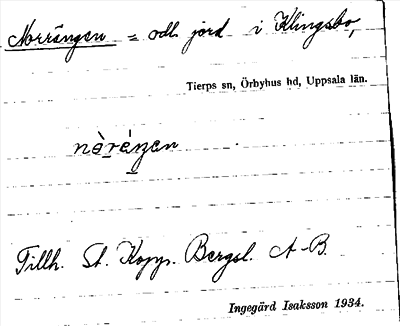 Norrängen = odl. jord i Klingsbo,
Tierps sn, Örbyhus hd, Uppsala län.
nàréŋen
Tillh. St. Kopp. Bergsl. A-B.
Ingegärd Isaksson 1934.